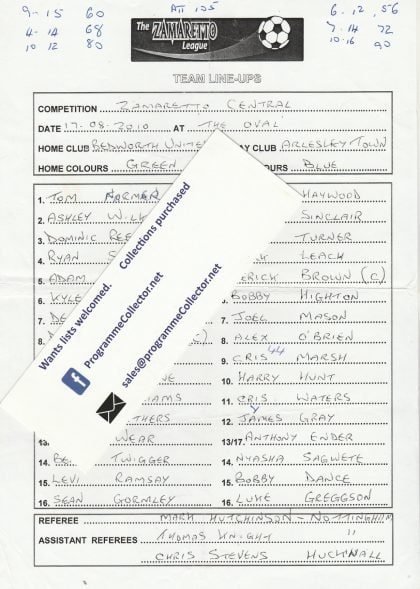 9-15 60 ATT 135 6-12, 56
4-14 68 7-14 72
10-12 80 10-16 90
The ZAMARETTO League
TEAM LINE-UPS
COMPETITION ZAMARETTO CENTRAL
DATE 17-08-2010 AT THE OVAL
HOME CLUB BEDWORTH UNITE AY CLUB ARLESLEY TOWN
HOME COLOURS GREEN OURS BLUE
1. TOM NORMEN HAYWOOD
2. ASHLEY WILK SINCLAIR
3. DOMINIC REE TURNER
4. RYAN S LEACH
5. ADAM ERICK BROWN (C)
6. KYLE BOBBY HIGHTON
7. DE 7. JOEL MASON
8. 8. ALEX O'BRIEN
9. CRIS 44 MARSH
NE 10. HARRY HUNT
IAMS 11. CRIS WATERS
THERS 12. JAMES GRAY
13/ WEAR 13/17. ANTHONY ENDER
14. BE TWIGGER 14. NYASHA SAGWETE
15. LEVI RAMSAY 15. BOBBY DANCE
16. SEAN GORMLEY 16. LUKE GREGGSON
REFEREE MARK HUTCHINSON - NOTTINGHAM
ASSISTANT REFEREES THOMAS KNIGHT "
CHRIS STEVENS HUCKNALL
Wants lists welcomed. Collections purchased
ProgrammeCollector.net
sales@programmeCollector.net